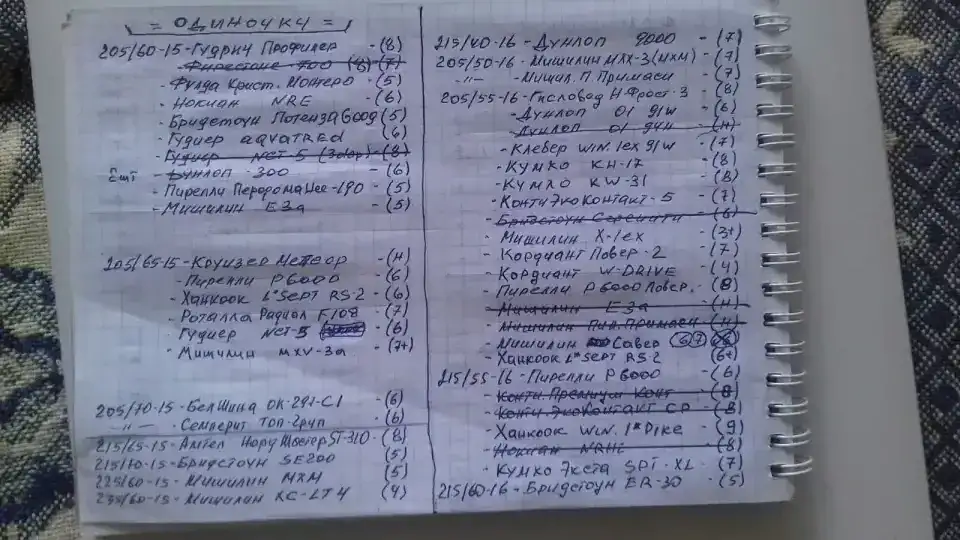 = ОДИНОЧКИ =
205/60-15 - Гудрич Профилер - (8)
Фирестоне 700 (8) (7)
- Фулда Крист. Монтеро - (5)
- Нокиан NRE - (6)
- Бридстоун Потенза G009 (5)
- Гудиер aqvatred (6)
- Гудиер NCT-5 (8)
- Дунлоп - 300 - (6)
- Пирелли - 190 - (5)
- Мишилин E3a - (5)
205/65-15 - Круизер Метеор - (4)
- Пирелли P6000 - (6)
- Ханкоок RS-2 - (6)
- Роталла Радиал F108 - (7)
- Гудиер NCT-5 - (6)
- Мишилин MXV-3a - (7+)
205/70-15 - БелШина ОК-291-С1 (6)
-"- - Семперит Топ-Груп (6)
215/65-15 - Амтел ST-310 - (8)
215/70-15 - Бридстоун SE200 (5)
225/60-15 - Мишилин MXM (5)
235/60-15 - Мишилин XC-LT4 (4)
215/40-16 - Дунлоп 9000 - (7)
205/50-16 - Мишилин (МХМ) - (7)
-"- - Мишил. П. Примаси - (7)
205/55-16 - Гисловед Н.Фрост-3 - (8)
- Дунлоп 01 91W - (6)
- Дунлоп 01 94H - (4)
- Клебер WIN. 1ex 91W - (7)
- Кумхо KH-17 - (8)
- Кумхо KW-31 (8)
- Конти Эко Контакт-5 - (7)
- Бридстоун Серенити - (6)
- Мишилин X-1ex - (3+)
- Кордиант Повер-2 (7)
- Кордиант W-DRIVE - (4)
- Пирелли P6000 Повер. - (8)
- Мишилин E3a - (4)
- Мишилин Пил.Примаси - (4)
- Мишилин Савер (6)(7)
- Ханкоок RS-2 (6+)
215/55-16 - Пирелли P6000 - (6)
- Конти. Премиум Конт - (8)
- Конти. ЭкоКонтакт CP - (8)
- Ханкоок WIN. - (9)
- Нокиан - (8)
- Кумхо Экста SPT-XL - (7)
215/60-16 - Бридстоун ER-30 - (5)